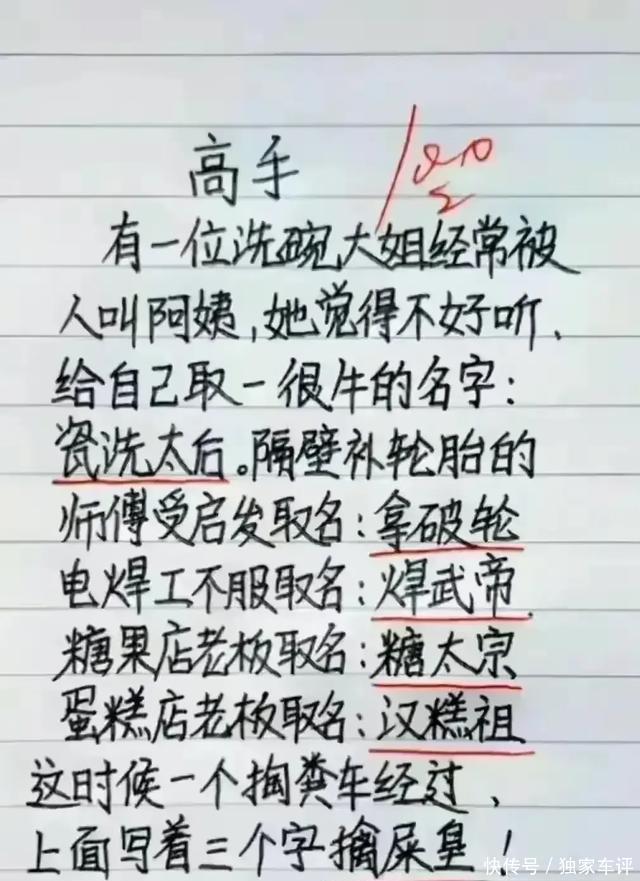 高手
有一位洗碗大姐经常被
人叫阿姨,她觉得不好听、
给自己取一很牛的名字:
瓷洗太后。隔壁补轮胎的
师傅受启发取名:拿破轮
电焊工不服取名:焊武帝
糖果店老板取名:糖太宗
蛋糕店老板取名:汉糕祖
这时候一个掏粪车经过、
上面写着三个字擒屎皇!
快传号/独家车评